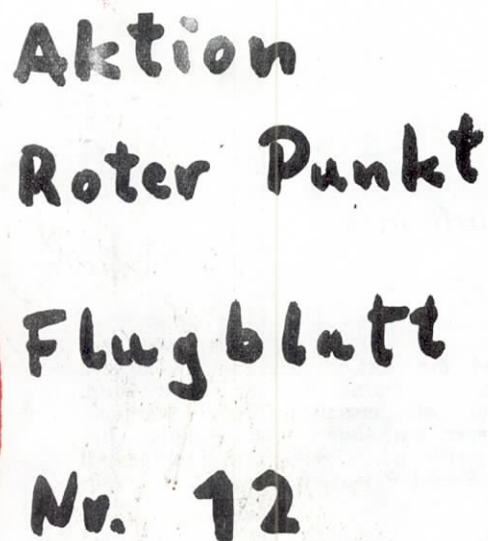 Aktion
Roter Punkt
Flugblatt
Nr. 12